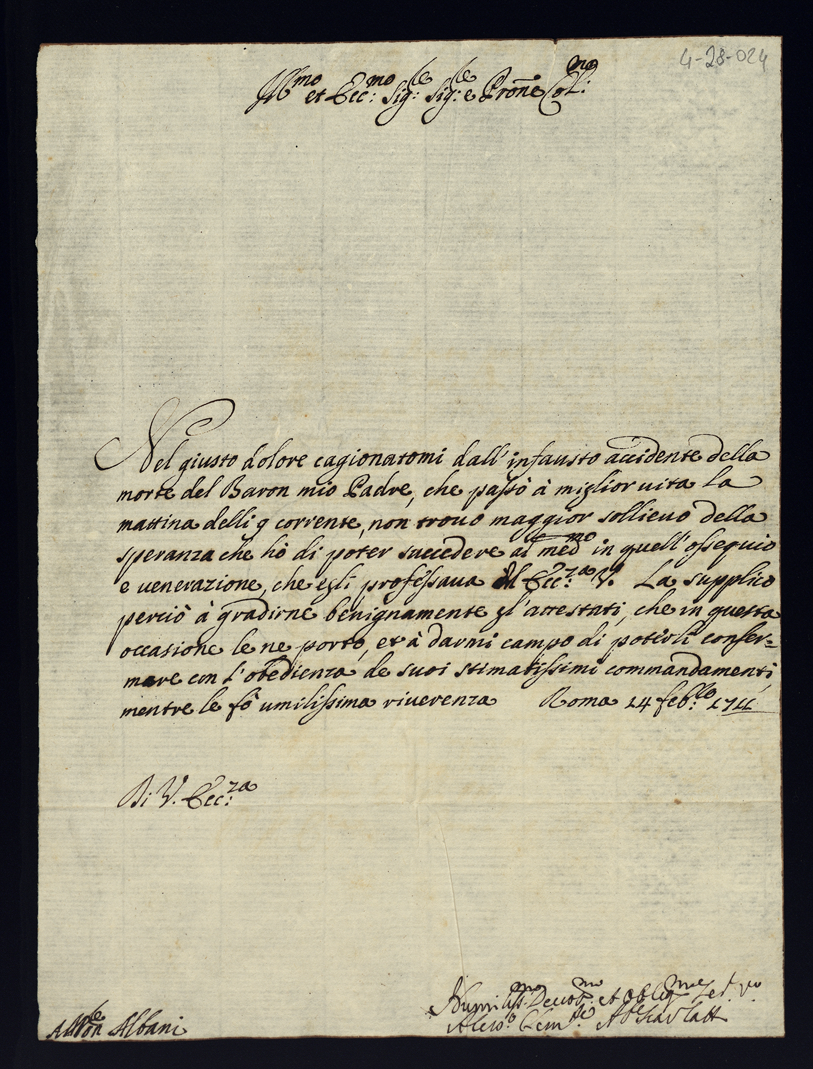 4-28-024
Ill.mo et Ecc:mo Sig:re Sig:re e Pron̄e Col:mo
Nel giusto dolore cagionatomi dall'infausto accidente della
morte del Baron mio Padre, che passò à miglior vita la
mattina delli 9 corrente, non trovo maggior sollievo della
speranza che hò di poter succedere al med.mo in quell'ossequio
e venerazione, che egli professava all' Ecc:za V. La supplico
perciò à gradirne benignamente gl'attestati, che in questa
occasione le ne porto, et à darmi campo di poterli confer=
mare con l'obedienza de suoi stimatissimi commandamenti
mentre le fò umilissima riverenza Roma 14 feb:ro 1711
Di V. Ecc:za
Albani
Humilis.mo Devot.mo et oblig.mo
Aless.o